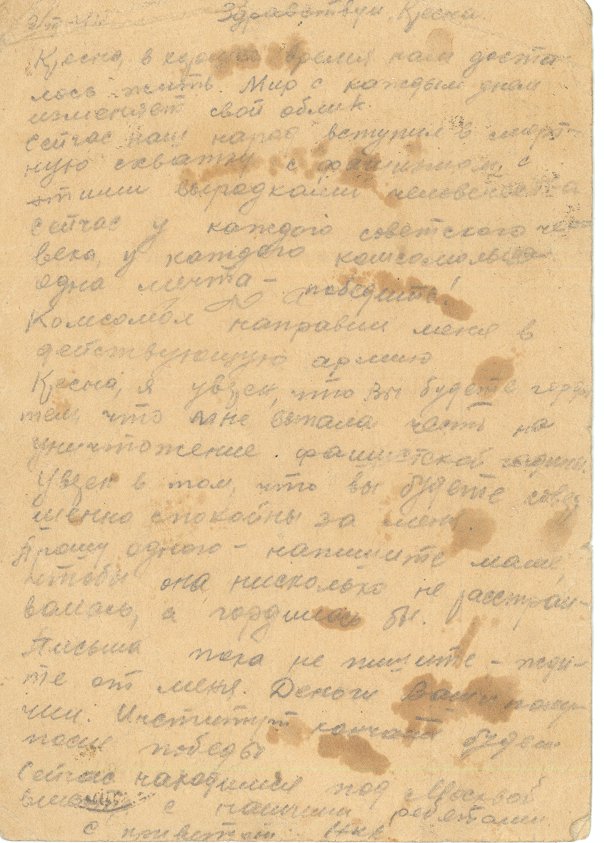 Здравствуй, Кресна.
Кресна, в время нам доста-
лось жить. Мир с каждым днем
изменяет свой облик.
Сейчас наш народ вступил в смерт-
ную схватку с фашизмом, с
этими выродками человечества
Сейчас у каждого советского чело-
века, у каждого комсомольца
одна мечта - победить!
Комсомол направил меня в
действующую армию
Кресна, я уверен, что вы будете
что мне выпала честь на
уничтожение фашистской гадины.
Уверен в том, что вы будете совер-
шенно спокойны за меня.
Прошу одного - напишите маме,
чтобы она нисколько не расстраи-
валась, а гордилась бы.
Письма пока не пишите - жди-
те от меня. Деньги Ваши полу-
чил. Институт кончать будем
после победы
Сейчас находимся под Москвой
вместе с нашими ребятами
С приветом